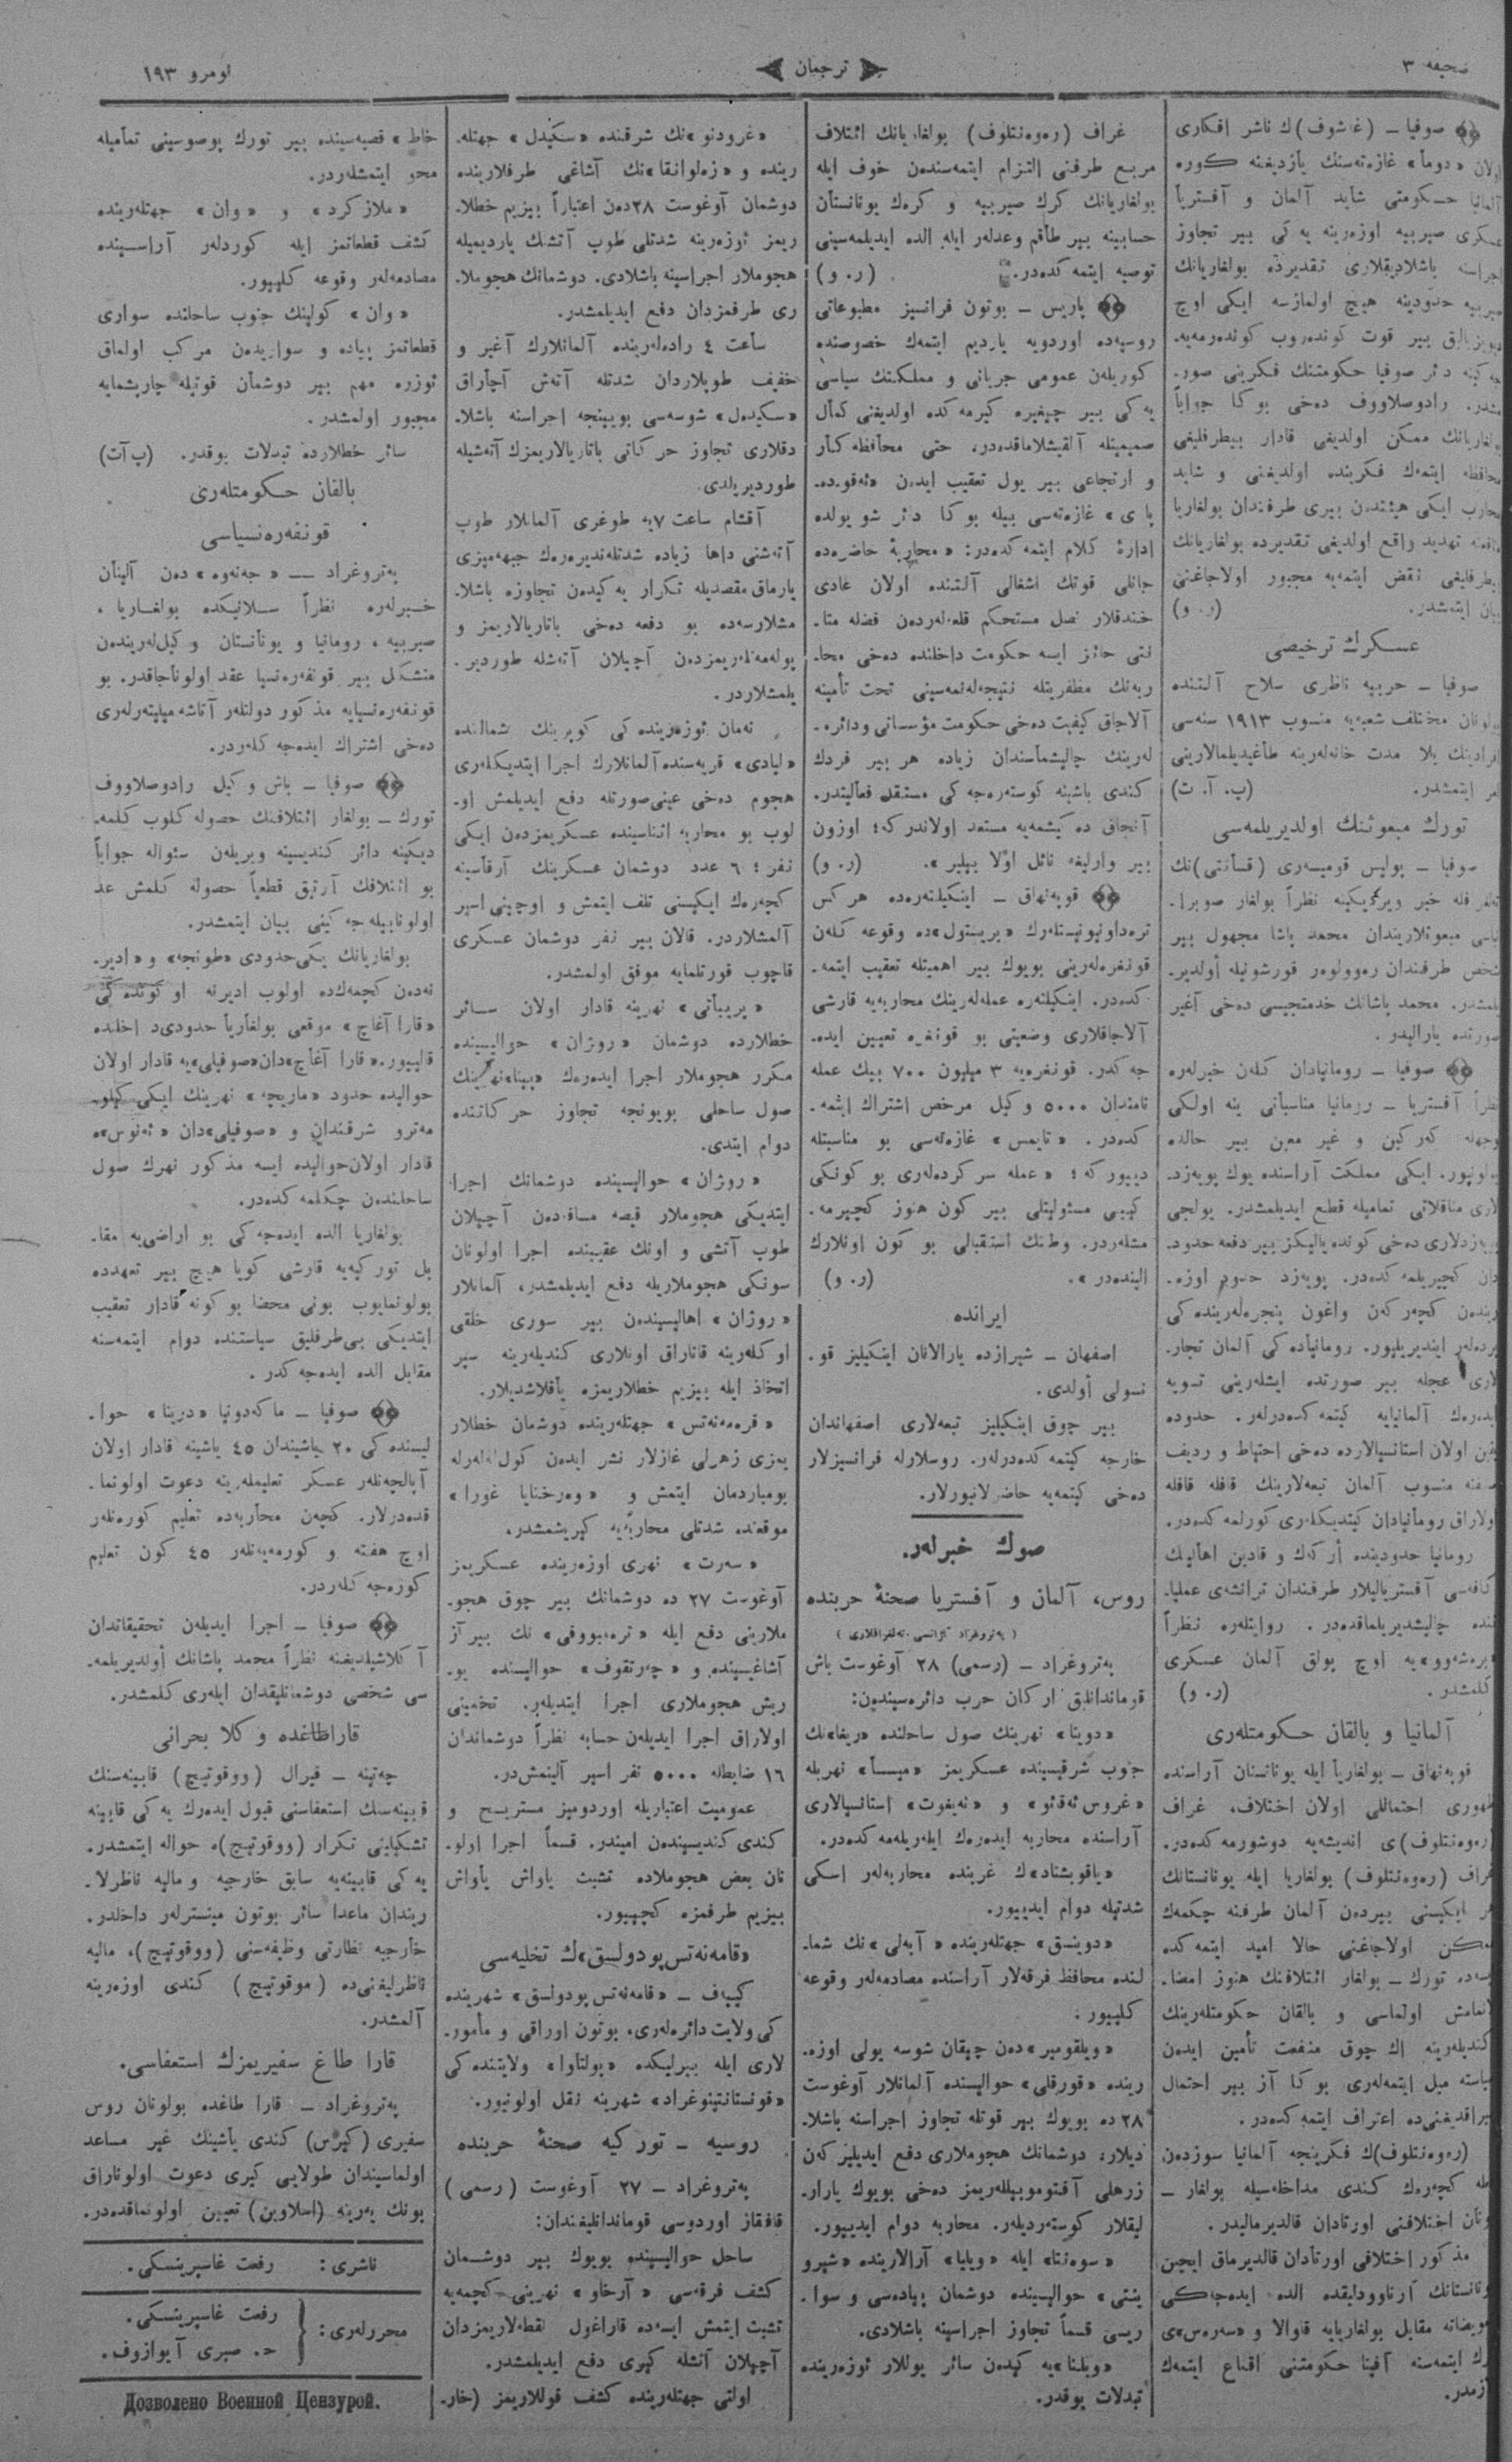 صحيفه ٣
ترجمان
نومرو ١٩٣
صوفيا ــ (غه‌شوف)ك ناشر افكارى
«دوما» غازه‌ته‌سنك يازديغنه كوره
حكومتى شايد آلمان و آفستريا
عسكرى صيربيه اوزه‌رينه يه كى بير تجاوز
باشلاديقلارى تقديرده بولغاريانك
حدودينه هيچ اولمازسه ايكى اوچ
بير قوت كونده‌روب كونده‌رمه‌يه‌ـ
دائر صوفيا حكومتنك فكرينى صورـ
رادوصلاووف ده‌خى بوكا جواباً
ممكن اولديغى قادار بيطرفليغى
محافظه ايتمه‌ك فكرينده اولديغنى و شايد
محارب ايكى هيئتدن بيرى طرفندان بولغاريا
تهديد واقع اولديغى تقديرده بولغاريانك
نقض ايتمه‌يه مجبور اولاجاغنى
بيان ايتمشدر. (ر. و)
عسكرك ترخيصى
صوفيا ــ حربيه ناظرى سلاح آلتنده
بولونان مختلف شعبه‌يه منسوب ١٩١٣ سنه‌سى
افرادينك بلا مدت خانه‌له‌رينه طاغيديلمالارينى
امر ايتمشدر. (پ. آ. ت)
تورك مبعوثنك اولديريلمه‌سى
صوفيا ــ پوليس قوميسه‌رى (قسانتى)نك
خبر ويرديكينه نظراً بولغار صوبرا.
مبعوثلاريندان محمد پاشا مجهول بير
شخص طرفندان ره‌وولوه‌ر قورشونيله أولدير.
محمد پاشانك خدمتجيسى ده‌خى آغير
صورتده يارالېدو.
صوفيا ــ رومانيادان كله‌ن خبرله‌ره
نظراً آفستريا ــ رومانيا مناسباتى ينه اولكى
كه‌ركين و غير معين بير حالده
ايكى مملكت آراسنده يوك پويه‌زد.
مناقلاتى تماميله قطع ايديلمشدر. يولجى
ده‌خى كونده ياليكز بير دفعه حدود.
كچيريلمه كده‌در. پويه‌زد حدود اوزه.
كچه‌ركه‌ن واغون پنجره‌له‌رينده كى
اينديريليور. رومانياده كى آلمان تجار.
عجله بير صورتده ايشله‌رينى تسويه
ايده‌رك آلمانيايه كيتمه كده‌درله‌ر. حدوده
اولان استانسيالارده ده‌خى احتياط و رديف
منسوب آلمان تبعه‌لارينك قافله قافله
اولاراق رومانيادان كيتديكله‌رى كورلمه كده‌در.
رومانيا حدودينده أركه‌ك و قادين اهالينك
كافه‌سى آفسترياليلار طرفندان ترانشه‌ى عملياـ
چاليشديريلماقده‌در. روايتله‌ره نظراً
اوچ پولق آلمان عسكرى
كلمشدر. (ر. و)
آلمانيا و بالقان حكومتله‌رى
قوپه‌نهاق ــ بولغاريا ايله يونانستان آراسنده
ظهورى احتماللى اولان اختلاف، غراف
(ره‌وه‌نتلوف)ى انديشه‌يه دوشورمه كده‌در.
غراف (ره‌وه‌نتلوف) بولغاريا ايله يونانستانك
ايكيسنى بيردن آلمان طرفنه چكمه‌ك
ممكن اولاجاغنى حالا اميد ايتمه كده
تورك ــ بولغار ائتلافنك هنوز امضا.
اولماسى و بالقان حكومتله‌رينك
كنديله‌رينه اك چوق منفعت تأمين ايدن
ميل ايتمه‌له‌رى بوكا آز بير احتمال
بيراقديغنى‌ده اعتراف ايتمه كده‌در.
(ره‌وه‌نتلوف)ك فكرينجه آلمانيا سوزدن
كچه‌رك كندى مداخله‌سيله بولغار ــ
يونان اختلافنى اورتادان قالديرماليدر.
مذكور اختلافى اورتادان قالديرماق ايچين
يونانستانك آرناوودليقده الده ايده‌جه‌كى
مقابل بولغاريايه قاوالا و «سه‌ره‌س»ى
ايتمه‌سنه آفينا حكومتنى اقناع ايتمه‌ك
لازمدر.
غراف (ره‌وه‌نتلوف) بولغاريانك ائتلاف
مربع طرفنى التزام ايتمه‌سندن خوف ايله
بولغاريانك كرك صيربيه و كرك يونانستان
حسابينه بير طاقم وعدله‌ر ايله الده ايديلمه‌سينى
توصيه ايتمه كده‌در. (ر. و)
پاريس ــ بوتون فرانسيز مطبوعاتى
روسيه‌ده اوردويه يارديم ايتمه‌ك خصوصنده
كوريله‌ن عمومى جريانى و مملكتك سياسى
يه كى بير چيغيره كيرمه كده اولديغنى كمال
صميميتله آلقيشلاماقده‌در، حتى محافظه كار
و ارتجاعى بير يول تعقيب ايدن «ئه‌قو‌ده‌ـ
پا‌رى» غازه‌ته‌سى بيله بوكا دائر شو يولده
ادارهٔ كلام ايتمه كده‌در: «محاربهٔ حاضره‌ده
جانلى قوتك اشغالى آلتنده اولان عادى
خندقلار نصل مستحكم قلعه‌له‌ردن فضله متا.
نتى حائز ايسه حكومت داخلنده ده‌خى محا.
ربه‌نك مظفريتله نتيجه‌له‌نمه‌سينى تحت تأمينه
آلاجاق كيفيت ده‌خى حكومت مؤسساتى ودائره.
له‌رينك چاليشماسندان زياده هر بير فردك
كندى باشينه كوستره‌جه كى مستقل فعاليتدر.
آنجاق ده كيشمه‌يه مستعد اولاندركه؛ اوزون
بير وارليغه نائل اولا بيلير». (ر. و)
قوپه‌نهاق ــ اينكيلته‌ره‌ده هر كس
تره‌داونيونيستله‌رك «بريستول»ده وقوعه كله‌ن
قونغره‌له‌رينى بويوك بير اهميتله تعقيب ايتمه.
كده‌در. اينكيلته‌ره عمله‌له‌رينك محاربه‌يه قارشى
آلاجاقلارى وضعيتى بو قونغره تعيين ايده.
جه كدر. قونغره‌يه ٣ ميليون ٧٠٠ بيك عمله
نامندان ٥٠٠٠ وكيل مرخص اشتراك ايتمه.
كده‌در. «تايمس» غازه‌ته‌سى بو مناسبتله
دييوركه؛ «عمله سركرده‌له‌رى بو كونكى
كيبى مسئوليتلى بير كون هنوز كچيرمه.
مشله‌ردر. وطنك استقبالى بو كون اونلارك
الينده‌در». (ر. و)
ايرانده
اصفهان ــ شيرازده يارالانان اينكيليز قو.
نسولى أولدى.
بير چوق اينكيليز تبعه‌لارى اصفهاندان
خارجه كيتمه كده‌درله‌ر. روسلارله فرانسيزلار
ده‌خى كيتمه‌يه حاضرلانيورلار.
صوك خبرله‌ر.
روس، آلمان و آفستريا صحنهٔ حربنده
(پتروغراد تلغرافلارى)
په‌تروغراد ــ (رسمى) ٢٨ آوغوست باش
قوماندانلق اركان حرب دائره‌سيندن:
«دوينا» نهرينك صول ساحلنده «ريغا»نك
جنوب شرقيسينده عسكريمز «ميسسا» نهريله
«غروس ئه‌قئو» و «نه‌يغوت» استانسيالارى
آراسنده محاربه ايده‌ره‌ك ايله‌ريله‌مه كده‌در.
«ياقوبشتاد»ك غربنده محاربه‌له‌ر اسكى
شدتيله دوام ايدييور.
«دوينسق» جهتله‌رينده «آبه‌لى»نك شما.
لنده محافظ فرقه‌لار آراسنده مصادمه‌له‌ر وقوعه
كلييور.
«ويلقومير»دن چيقان شوسه يولى اوزه.
رينده «قورقلى» حواليسنده آلمانلار آوغوست
٢٨ ده بويوك بير قوتله تجاوز اجراسنه باشلا.
ديلار؛ دوشمانك هجوملارى دفع ايديليركه‌ن
زرهلى آفتوموبيللريمز ده‌خى بويوك يارار.
ليقلار كوسته‌رديله‌ر. محاربه دوام ايدييور.
«سوه‌نتا» ايله «ويليا» آرالارينده «شيرو
ينتى» حواليسينده دوشمان پياده‌سى و سوا.
ريسى قسماً تجاوز اجراسينه باشلادى.
«ويلنا»يه كيدن سائر يوللار ئوزه‌رينده
تبدلات يوقدر.
«غرودنو»نك شرقنده «سكيدل» جهتله.
رينده و «زه‌لوانقا»نك آشاغى طرفلارينده
دوشمان آوغوست ٢٨دن اعتباراً بيزيم خطلا.
ريمز ئوزه‌رينه شدتلى طوپ آتشنك يارديميله
هجوملار اجراسينه باشلادى. دوشمانك هجوملا.
رى طرفمزدان دفع ايديلمشدر.
ساعت ٤ راده‌له‌رينده آلمانلارك آغير و
خفيف طوپلاردان شدتله آتش آچاراق
«سكيدل» شوسه‌سى بويينجه اجراسنه باشلا.
دقلارى تجاوز حركاتى باتاريالاريمزك آته‌شيله
طورديريلدى.
آقشام ساعت ٧يه طوغرى آلمانلار طوپ
آته‌شنى داها زياده شدتله‌نديره‌ره‌ك جبهه‌ميزى
يارماق مقصديله تكرار يه كيدن تجاوزه باشلا.
مشلارسه‌ده بو دفعه ده‌خى باتاريالاريمز و
پوله‌مه‌تله‌ريمزدن آچيلان آته‌شله طوردير.
يلمشلاردر.
نه‌مان ئوزه‌رينده كى كوپرينك شمالنده
«لبادى» قريه‌سنده آلمانلارك اجرا ايتديكله‌رى
هجوم ده‌خى عينى صورتله دفع ايديلمش او.
لوب بو محاربه اثناسينده عسكريمزدن ايكى
نفر؛ ٦ عدد دوشمان عسكرينك آرقاسينه
كچه‌ره‌ك ايكيسنى تلف ايتمش و اوچينى اسير
آلمشلاردر. قالان بير نفر دوشمان عسكرى
قاچوب قورتلمايه موفق اولمشدر.
«پريپاتى» نهرينه قادار اولان سائر
خطلارده دوشمان «روژان» حواليسينده
مكرر هجوملار اجرا ايده‌ره‌ك «پينا»نهرينك
صول ساحلى بويونجه تجاوز حركاتنده
دوام ايتدى.
«روژان» حواليسينده دوشمانك اجرا
ايتديكى هجوملار قيصه مسافه‌دن آچيلان
طوپ آتشى و اونك عقبينده اجرا اولونان
سونكى هجوملاريله دفع ايديلمشدر، آلمانلار
«روژان» اهاليسيندن بير سورى خلقى
اوكله‌رينه قاتاراق اونلارى كنديله‌رينه سپر
اتخاذ ايله بيزيم خطلاريمزه ياقلاشديلار.
«قره‌مه‌نه‌تس» جهتله‌رينده دوشمان خطلار
يمزى زهرلى غازلار نشر ايدن كولله‌له‌رله
بومباردمان ايتمش و «وه‌رخنايا غورا»
موقعنده شدتلى محاربه‌يه كيريشمشدر.
«سه‌رت» نهرى اوزه‌رينده عسكريمز
آوغوست ٢٧ ده دوشمانك بير چوق هجو.
ملارينى دفع ايله «تره‌مبووفى»نك بير آز
آشاغيسينده و «چه‌رتقوف» حواليسنده يو.
ريش هجوملارى اجرا ايتديله‌ر. تخمينى
اولاراق اجرا ايديله‌ن حسابه نظراً دوشماندان
١٦ ضابطله ٥٠٠٠ نفر اسير آلينمش‌در.
عموميت اعتباريله اوردوميز مستريح و
كندى كنديسيندن اميندر. قسماً اجرا اولو.
نان بعض هجوملاده تشبث ياواش ياواش
بيزيم طرفمزه كچييور.
«قامه‌نه‌تس پودولسق»ك تخليه‌سى
كييه‌ف ــ «قامه‌نه‌تس پودولسق» شهرينده
كى ولايت دائره‌له‌رى، بوتون اوراقى و مأمور.
لارى ايله بيرليكده «پولتاوا» ولايتنده كى
«قونستانتينوغراد» شهرينه نقل اولونيور.
روسيه ــ توركيه صحنهٔ حربنده
په‌تروغراد ــ ٢٧ آوغوست (رسمى)
قافقاز اوردوسى قوماندانليغندان:
ساحل حواليسينده بويوك بير دوشمان
كشف فرقه‌سى «آرخاو» نهرينى كچمه‌يه
تشبث ايتمش ايسه‌ده قاراغول نقطه‌لاريمزدان
آچيلان آتشله كيرى دفع ايديلمشدر.
اولتى جهتله‌رينده كشف قوللاريمز (خار.
خاط» قصبه‌سينده بير تورك پوصوسينى تماميله
محو ايتمشله‌ردر.
«ملازكرد» و «وان» جهتله‌رينده
كشف قطعاتمز ايله كوردله‌ر آراسينده
مصادمه‌له‌ر وقوعه كلييور.
«وان» كولينك جنوب ساحلنده سوارى
قطعاتمز پياده و سواريدن مركب اولماق
ئوزره مهم بير دوشمان قوتيله چارپشمايه
مجبور اولمشدر.
سائر خطلارده تبدلات يوقدر. (پ آت)
بالقان حكومتله‌رى
قونفه‌ره‌نسياسى
په‌تروغراد ــ «جه‌نه‌وه»دن آلينان
خبرله‌ره نظراً سلانيكده بولغاريا،
صيربيه، رومانيا و يونانستان وكيل‌له‌ريندن
متشكل بير قونفه‌ره‌نسيا عقد اولوناجاقدر. بو
قونفه‌ره‌نسيايه مذكور دولتله‌ر آتاشه ميليته‌رله‌رى
ده‌خى اشتراك ايده‌جه كله‌ردر.
صوفيا ــ باش وكيل رادوصلاووف
تورك ــ بولغار ائتلافنك حصوله كلوب كلمه.
ديكينه دائر كنديسينه ويريله‌ن سئواله جواباً
بو ائتلافك آرتيق قطعياً حصوله كلمش عد
اولونابيله‌جه كينى بيان ايتمشدر.
بولغاريانك يكى حدودى «طونجه» و «ادير.
نه‌دن كچمه‌ك‌ده اولوب اديرنه اوكونده كى
«قارا آغاچ» موقعى بولغاريا حدودى داخلنده
قالييور. «قارا آغاچ»دان «صوفيلى»يه قادار اولان
حواليده حدود «ماريچه» نهرينك ايكى كيلو.
مه‌ترو شرقندان و «صوفيلى»دان «ئه‌نوس»ه
قادار اولان حواليده ايسه مذكور نهرك صول
ساحلندن چكلمه كده‌در.
بولغاريا الده ايده‌جه كى بو اراضى‌يه مقا.
بل توركيه‌يه قارشى كويا هيچ بير تعهدده
بولونمايوب بونى محضا بو كونه قادار تعقيب
ايتديكى بى‌طرفليق سياستنده دوام ايتمه‌سنه
مقابل الده ايده‌جه كدر.
صوفيا ــ ماكه‌دونيا «درينا» حوا.
ليسنده كى ٢٠ ياشيندان ٤٥ ياشينه قادار اولان
آيالچه‌نله‌ر عسكر تعليمله‌رينه دعوت اولونما.
قده‌درلار. كچه‌ن محاربه‌ده تعليم كوره‌نله‌ر
اوچ هفته و كورمه‌يه‌نله‌ر ٤٥ كون تعليم
كوره‌جه كله‌ردر.
صوفيا ــ اجرا ايديله‌ن تحقيقاتدان
آكلاشيلديغنه نظراً محمد پاشانك أولديريلمه.
سى شخصى دوشمانليقدان ايله‌رى كلمشدر.
قاراطاغده وكلا بحرانى
چه‌تينه ــ قيرال (ووقوتيچ) قابينه‌سنك
قبينه‌سنك استعفاسنى قبول ايده‌رك يه كى قابينه
تشكيلينى تكرار (ووقوتيچ)ه حواله ايتمشدر.
يه كى قابينه‌يه سابق خارجيه و ماليه ناظرلا.
ريندان ماعدا سائر بوتون مينسترله‌ر داخلدر.
خارجيه نظارتى وظيفه‌سنى (ووقوتيچ)، ماليه
ناظرليغنى‌ده (موقوتيچ) كندى اوزه‌رينه
آلمشدر.
قارا طاغ سفيريمزك استعفاسى.
په‌تروغراد ــ قارا طاغده بولونان روس
سفيرى (كيرس) كندى ياشينك غير مساعد
اولماسيندان طولايى كيرى دعوت اولوناراق
يونك يه‌رينه (اسلاوين) تعيين اولونماقده‌در.
ناشرى: رفعت غاسپرينسكى.
محررله‌رى: رفعت غاسپرينسكى.
ح. صبرى آيوازوف.
Дозволено Военной Цензурой.